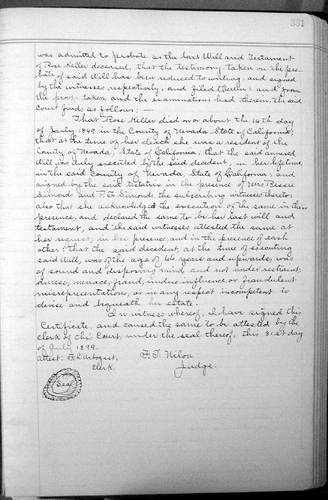 381
was admitted to probate as the Last Will and Testament
of Rose Keller deceased, that the testimony taken on the pro-
bate of said Will has been reduced to writing, and signed
by the witnesses respectively, and filed therein; and from
the proof taken and the examinations had therein, the said
Court finds as follows:
That Rose Keller died on or about the 16th day
of July 1899 in the County of Nevada, State of California;
that at the time of her death she was a resident of the
County of Nevada, State of California, that the said annexed
Will was duly executed by the said decedent, in her lifetime
in the said County of Nevada, State of California; and
signed by the said testatrix in the presence of Mrs Bessie
Simonds and F. Simonds the subscribing witnesses thereto;
also that she acknowledged the execution of the same in their
presence, and declared the same to be her last will and
testament, and the said witnesses attested the same at
her request, in her presence, and in the presence of each
other: that the said decedent, at the time of executing
said Will, was of the age of 66 years and upwards, was
of sound and disposing mind and not under restraint,
duress, menace, fraud, undue influence or fraudulent
misrepresentations, or in any respect incompetent to
devise and bequeath her estate.
In witness whereof, I have signed this
Certificate, and caused the same to be attested by the
Clerk of this Court, under the seal thereof, this 31st day
of July, 1899.
F. T. Nilon
Attest: F. L. Arbogast,
Judge.
Clerk.
Seal